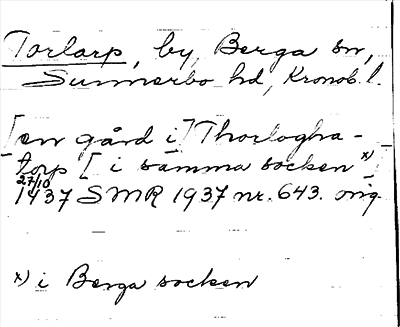 Torlarp, by, Berga sn,
Sunnerbo hd, Kronob. l.
[en gård i] Thorlogha-
torp [i samma socken x)]
27/10
1437 SMR 1937 nr. 643. orig.
x) i Berga socken